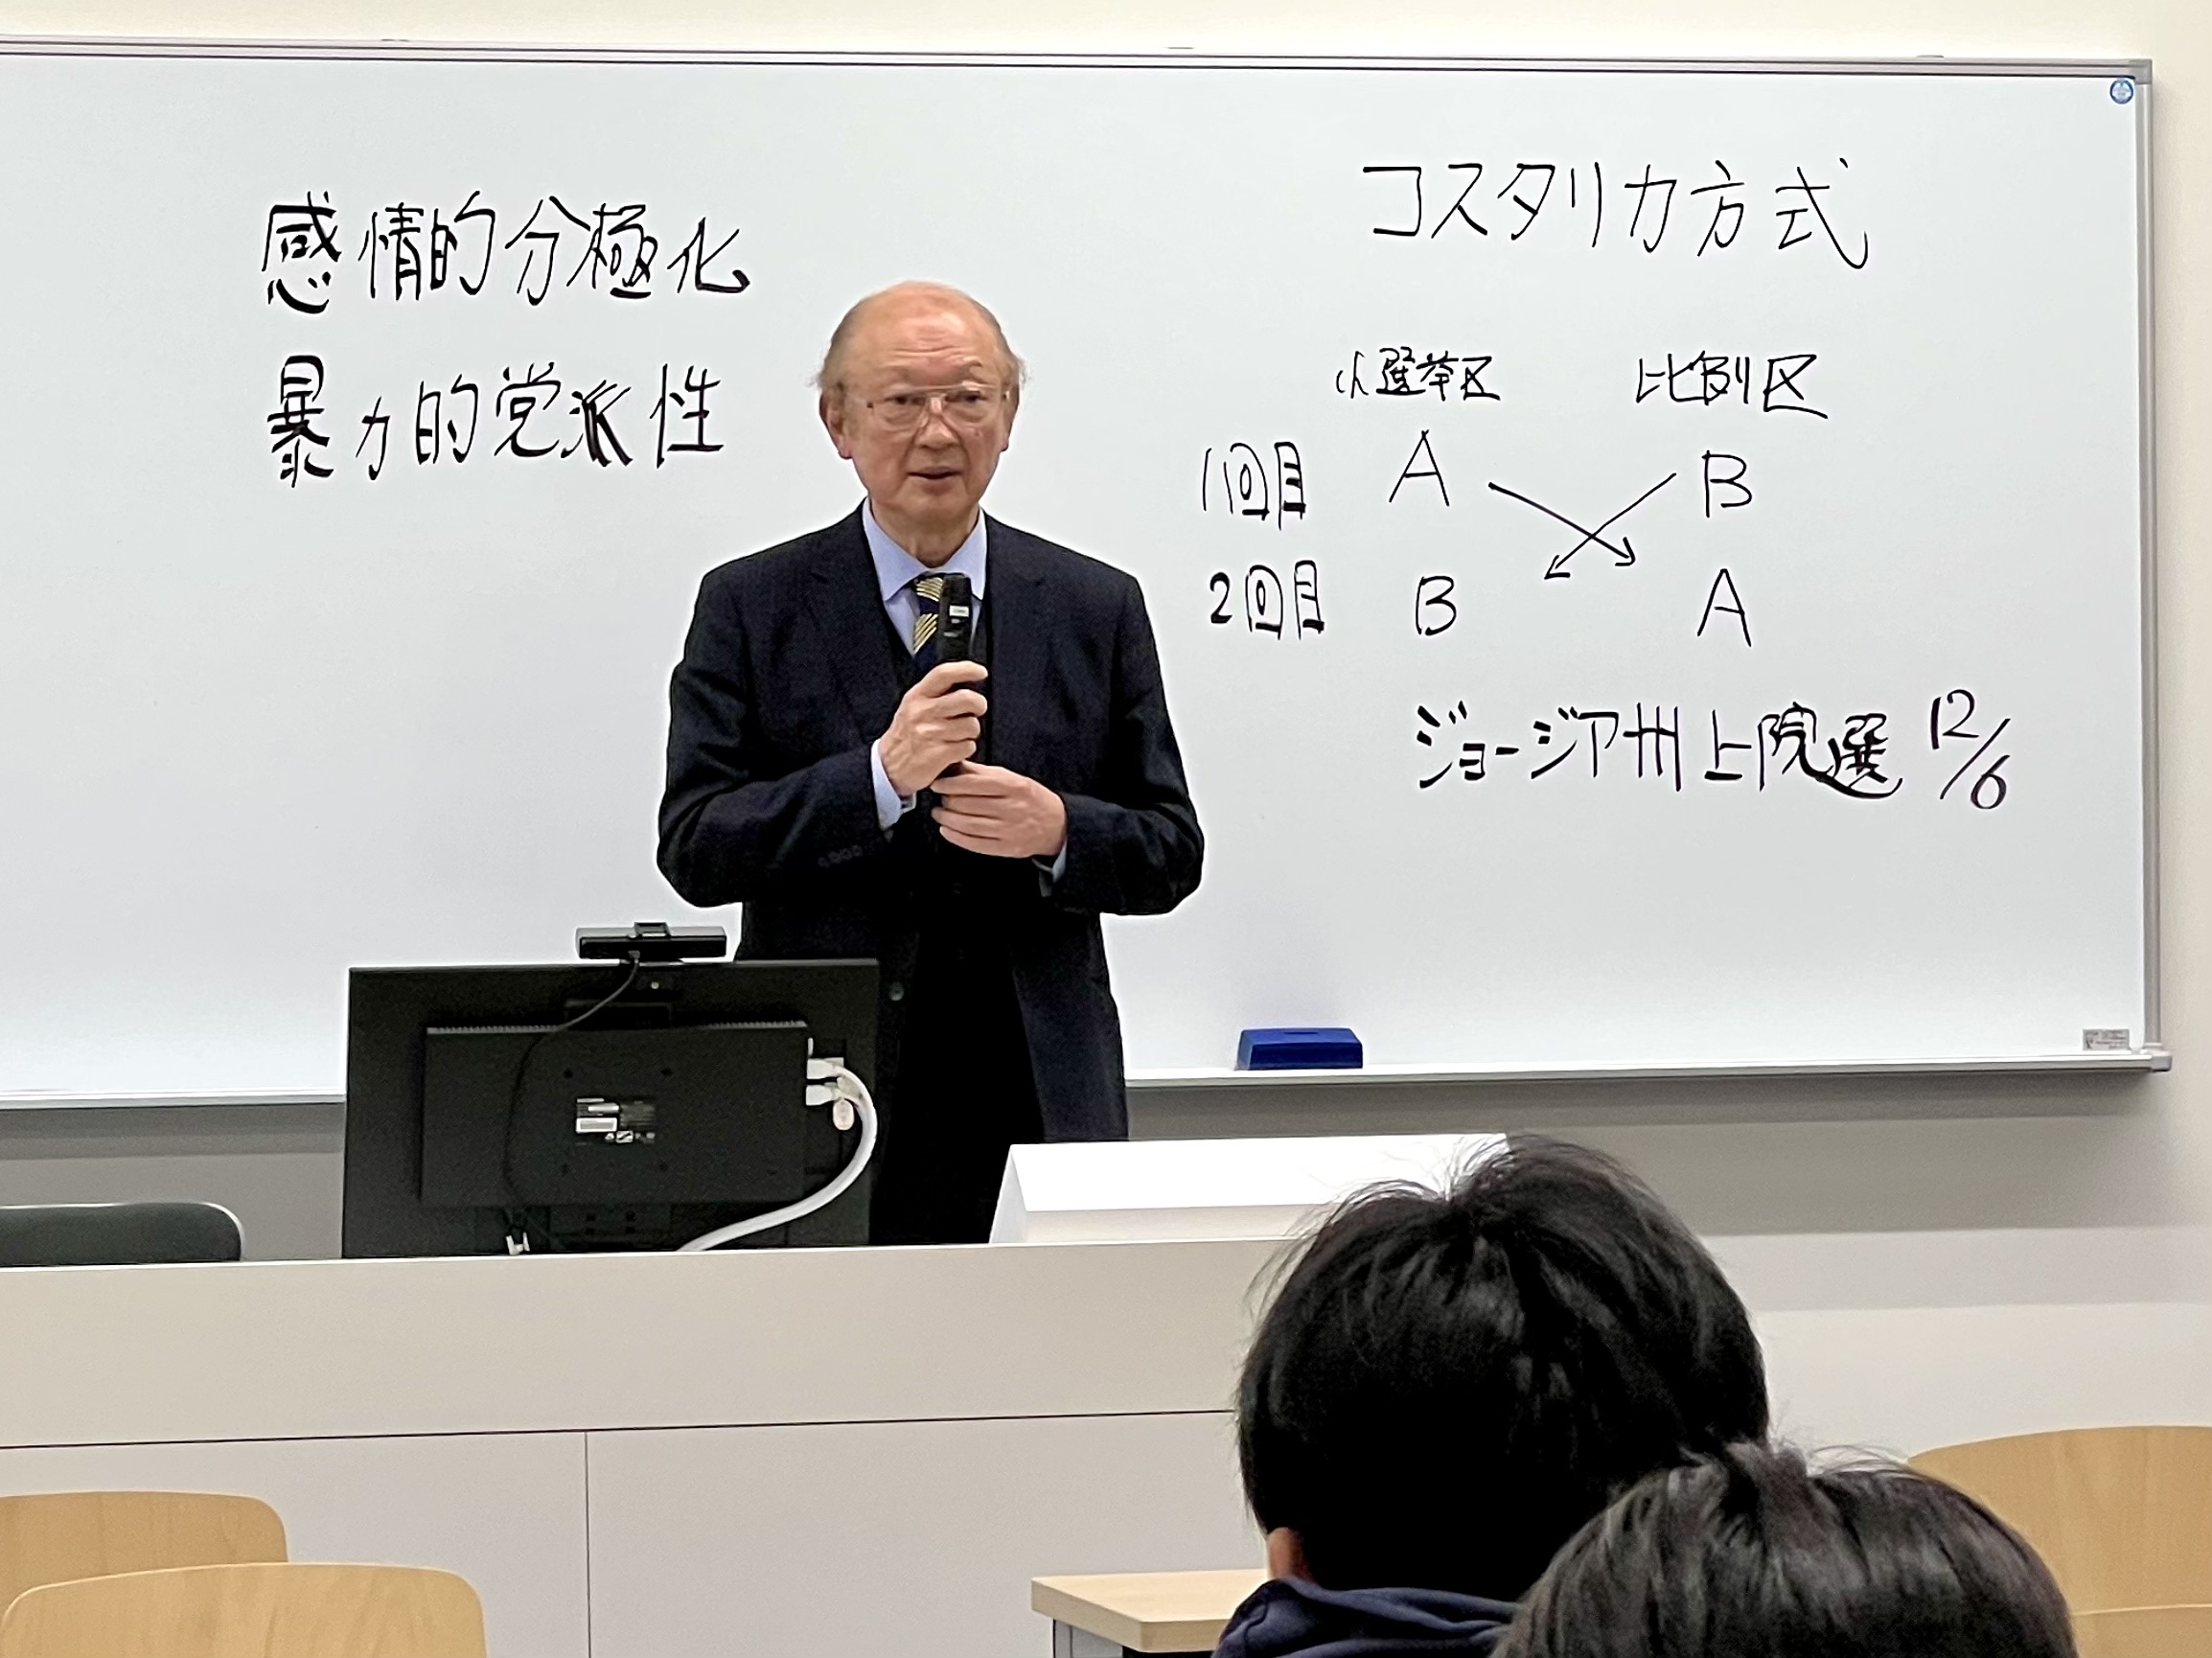 感情的分極化
暴力的党派性
コスタリカ方式
小選挙区 比例区
1回目 A B
2回目 B A
ジョージア州上院選 12/6